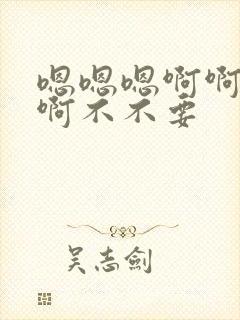 嗯嗯嗯啊啊
啊不不要
吴志剑